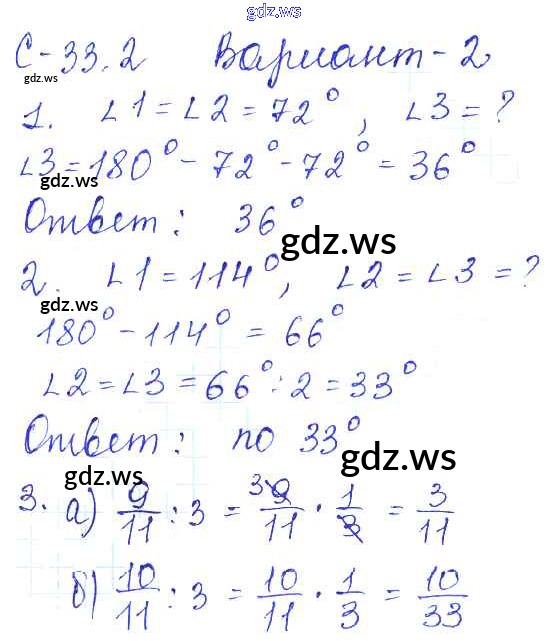 gdz.ws
С-33.2 Вариант-2
gdz.ws
1. ∠1=∠2=72°, ∠3=?
∠3=180°-72°-72°=36°
gdz.ws
Ответ: 36°
gdz.ws
2. ∠1=114°, ∠2=∠3=?
gdz.ws
180°-114°=66°
∠2=∠3=66°:2=33°
Ответ: по 33°
gdz.ws
gdz.ws
3. а) 9/11 : 3 = 3 9/11 · 1/3 = 3/11
б) 10/11 : 3 = 10/11 · 1/3 = 10/33